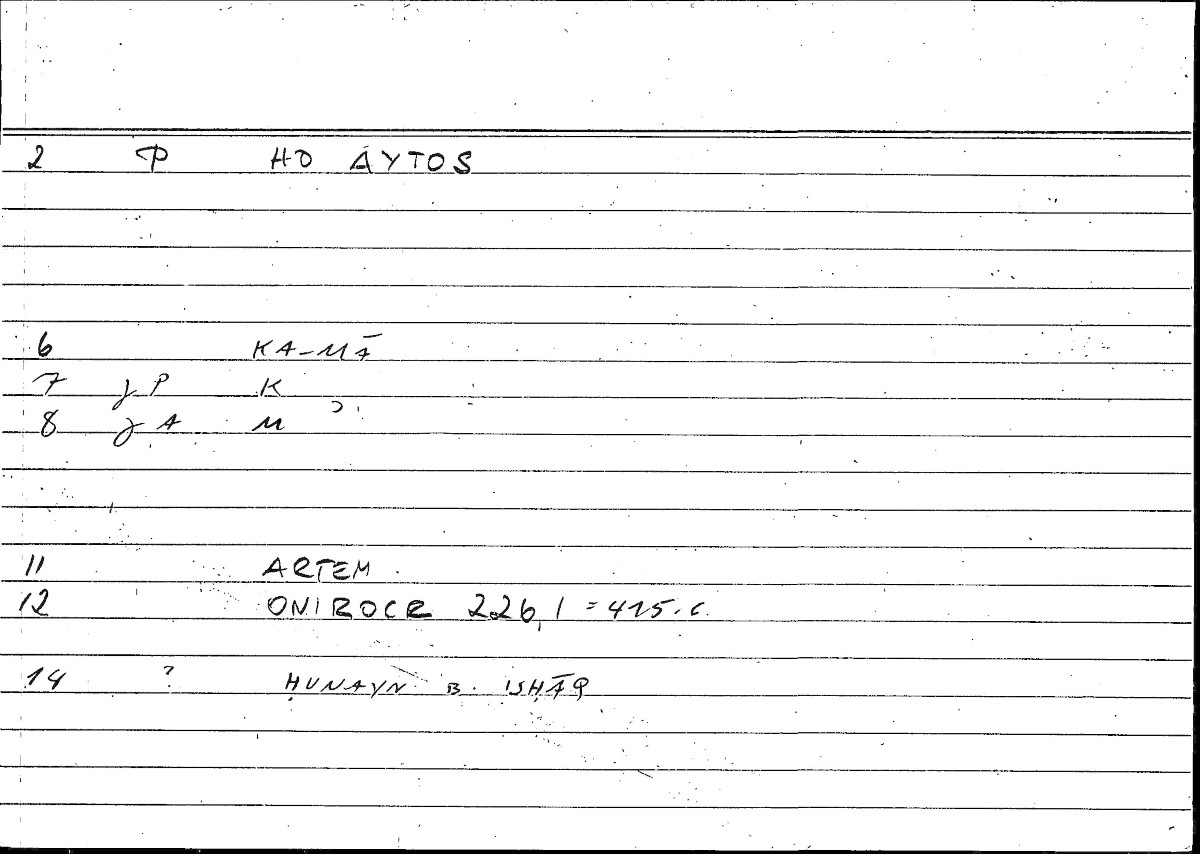 2 P HO AYTOS
6 KA-MĀ
7 γ P K
8 γ A M
11 ARTEM.
12 ONIROCR 226,1 = 415.6
14 ? ḤUNAYN B. ISḤĀQ